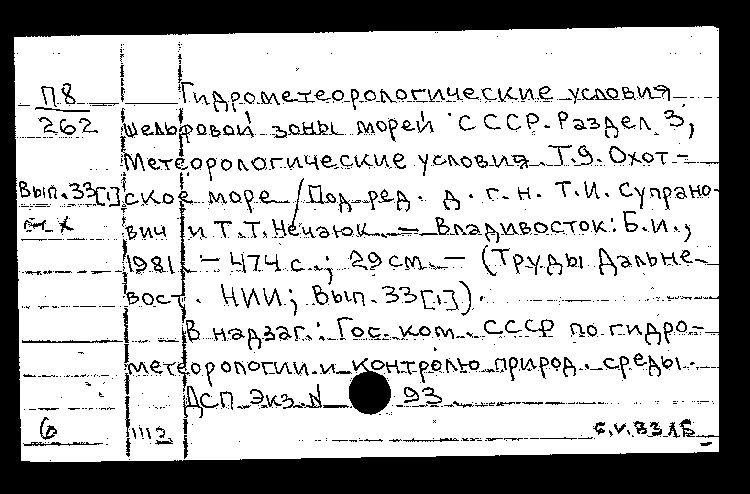 П8
262
Вып.33[1]
Гидрометеорологические условия
шельфовой зоны морей СССР. Раздел 3,
Метеорологические условия. Т.9. Охот-
ское море / Под ред. д.г.н. Т.И. Супрано-
вич и Т.Т. Нечаюк. — Владивосток: Б.И.,
1981. — 474 с.; 29 см. — (Труды Дальне-
вост. НИИ; Вып. 33[1]).
В надзаг.: Гос. ком. СССР по гидро-
метеорологии и контролю природ. среды.
ДСП Экз. N 93.
6
1112